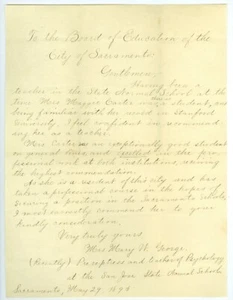 To the Board of Education of the
City of Sacramento:
Gentlemen:
Having been a
teacher in the State Normal School at the
time Miss Maggie Carter was a student, and
being familiar with her work in Stanford
University, I feel confident in recommend-
ing her as a teacher.
Miss Carter was an exceptionally good student
in general lines and excelled in the
personal work at both institutions, winning
the highest commendation.
As she is a resident of this city and has
taken a professional course in the hopes of
securing a position in the Sacramento schools,
I most earnestly commend her to your
kindly consideration.
Very truly yours,
Mrs. Mary W. George,
(Recently) Preceptress and teacher of Psychology
at the San Jose State Normal School.
Sacramento, May 29, 1896